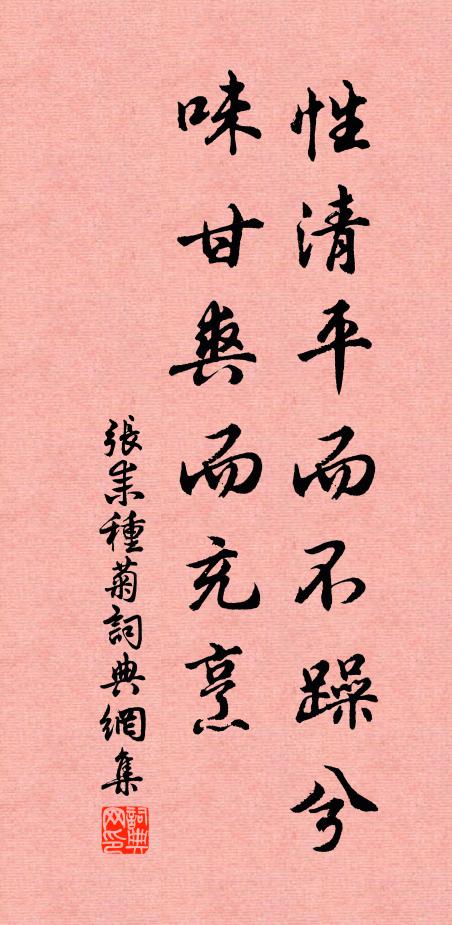 性清平而不躁兮
味甘爽而充烹
張耒種菊詞典網集
詞典网印